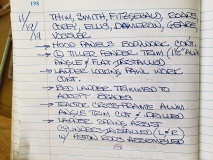 198
11/19/19
THIM, SMITH, FITZGERALD, ROARK
COREY, ELLIS, DAMERON, GEARE
→ HOOD PANELS BODYWORK CONT.
→ TILLER FENDER TRIM (1½" ALUM
ANGLE & FLAT) INSTALLED
→ LADDER LOCKING PAWL WORK
CONT.
→ BED LADDER TRIMMED TO
ACCEPT
→ TRACTOR CROSS-FRAME ALUM
ANGLE TRIM CUT & DRILLED
→ LADDER SPRING ASSIST
CYLINDERS INSTALLED (L & R)
W/ PISTON RODS ASSEMBLED